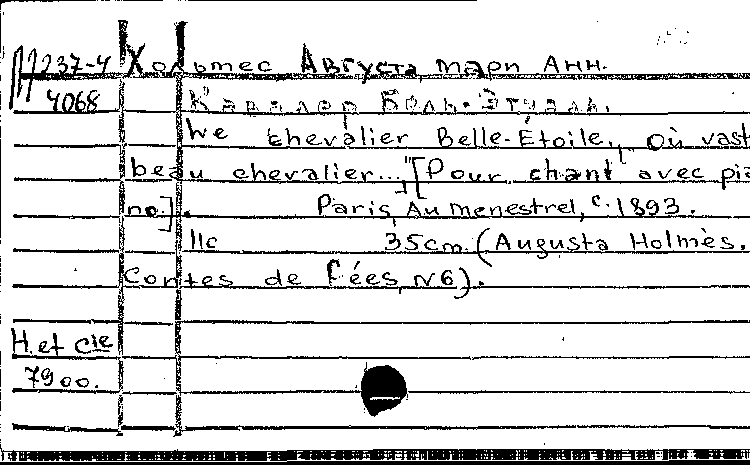 П237-4 Хольмес Августа, мари Анн.
4068 Кавалер Бель-Этуаль.
We chevalier Belle-Étoile, „Où vast
beau chevalier..." [Pour chant avec pia
no]. Paris, Au menestrel, c. 1893.
11c 35cm. (Augusta Holmès.
Contes de fées, N6).
H. et Cie
7900.